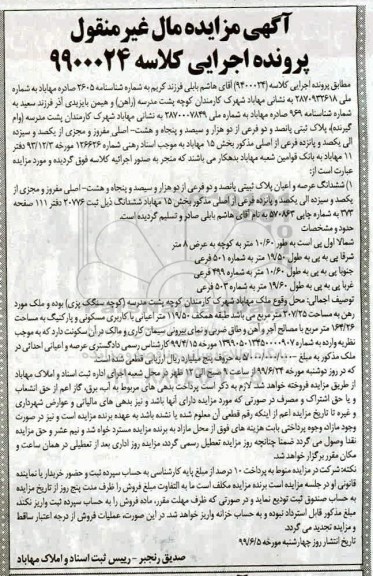 آگهی مزایده مال غیر منقول
پرونده اجرایی کلاسه ۹۹۰۰۰۲۴
مطابق پرونده اجرایی کلاسه (۹۴۰۰۰۲۴) آقای هاشم بابلی فرزند کریم به شماره شناسنامه ۲۶۰۵ صادره مهاباد به شماره
ملی ۲۸۷۰۹۳۲۶۱۸ به نشانی مهاباد شهرک کارمندان کوچه پشت مدرسه (راهن) و هیمن بایزیدی آذر فرزند سعید به
شماره شناسنامه ۹۶۹ صادره مهاباد به شماره ملی ۲۸۷۰۰۰۷۸۴۹ به نشانی مهاباد شهرک کارمندان پشت مدرسه (وام
گیرنده)، پلاک ثبتی پانصد و دو فرعی از دو هزار و سیصد و پنجاه و هشت- اصلی مفروز و مجزی از یکصد و سیزده
الی یکصد و پانزده فرعی از اصلی مذکور بخش ۱۵ مهاباد به موجب اسناد رهنی شماره ۱۲۶۶۲۶ مورخه ۹۲/۱۲/۳ دفتر
۱۱ مهاباد به بانک قوامین شعبه مهاباد بدهکار می باشند که منجر به صدور اجرائیه کلاسه فوق گردیده و مورد مزایده
عبارت است از:
۱) ششدانگ عرصه و اعیان پلاک ثبتی پانصد و دو فرعی از دو هزار و سیصد و پنجاه و هشت- اصلی مفروز و مجزی از
یکصد و سیزده الی یکصد و پانزده فرعی از اصلی مذکور بخش ۱۵ مهاباد ششدانگ ذیل ثبت ۲۰۷۷۶ دفتر ۱۱۱ صفحه
۳۷۳ به شماره چاپی ۵۷۰۸۶۳ به نام آقای هاشم بابلی صادر و تسلیم گردیده است.
حدود و مشخصات
شمالا اول پی است به طول ۱۰/۶۰ متر به کوچه به عرض ۸ متر
شرقا پی به پی به طول ۱۹/۵۰ متر به شماره ۵۰۱ فرعی
جنوبا پی به پی به طول ۱۰/۶۰ متر به شماره ۴۹۹ فرعی
غربا پی به پی به طول ۱۹/۶۰ متر به شماره ۵۰۳ فرعی
توصیف اجمالی: محل وقوع ملک مهاباد شهرک کارمندان کوچه پشت مدرسه (کوچه سنگک پزی) بوده و ملک مورد
رهن به مساحت ۲۰۷/۲۵ متر مربع می باشد طبقه همکف ۱۱۹/۵۰ متر اعیانی با کاربری مسکونی و پارکینگ به مساحت
۱۶۴/۲۶ متر مربع با مصالح آجر و آهن و طاق ضربی و نمای بیرونی سیمان کاری و مالک در آن سکونت دارد که به موجب
نظریه وارده به شماره ۱۳۹۹۰۵۰۱۳۴۵۰۰۰۰۹۰۷ مورخه ۹۹/۴/۱۵ کارشناس رسمی دادگستری عرصه و اعیانی احداثی در
ملک مذکور به مبلغ ۵/۰۰۰/۰۰۰/۰۰۰ به حروف پنج میلیارد ریال ارزیابی قطعی شده است.
که در روز دوشنبه مورخه ۹۹/۶/۲۴ از ساعت ۹ صبح الی ۱۲ ظهر در محل شعبه اجرای اداره ثبت اسناد و املاک مهاباد
از طریق مزایده فروخته خواهد شد. لازم به ذکر است پرداخت بدهی های مربوط به آب، برق، گاز اعم از حق انشعاب
و یا حق اشتراک و مصرف در صورتی که مورد مزایده دارای آنها باشد و نیز بدهی های مالیاتی و عوارض شهرداری
و غیره تا تاریخ مزایده اعم از اینکه رقم قطعی آن معلوم شده یا نشده باشد به عهده برنده مزایده است و نیز در صورت
وجود مازاد، وجوه پرداختی بابت هزینه های فوق از محل مازاد به برنده مزایده مسترد خواهد شد و نیم عشر و حق مزایده
نقدا وصول می گردد ضمنا چنانچه روز مزایده تعطیل رسمی گردد، مزایده روز اداری بعد از تعطیلی در همان ساعت و
مکان مقرر برگزار خواهد شد.
نکته: شرکت در مزایده منوط به پرداخت ۱۰ درصد از مبلغ پایه کارشناسی به حساب سپرده ثبت و حضور خریدار یا نماینده
قانونی او در جلسه مزایده است برنده مزایده مکلف است ما به التفاوت مبلغ فروش را ظرف مدت پنج روز از تاریخ مزایده
به حساب صندوق ثبت تودیع نماید و در صورتی که ظرف مهلت مقرر، مانده فروش را به حساب سپرده ثبت واریز نکند،
مبلغ مذکور قابل استرداد نبوده و به حساب خزانه واریز خواهد شد. در این صورت، عملیات فروش از درجه اعتبار ساقط
و مزایده تجدید می گردد
تاریخ انتشار روز چهارشنبه مورخه ۹۹/۶/۵
صدیق رنجبر - رییس ثبت اسناد و املاک مهاباد